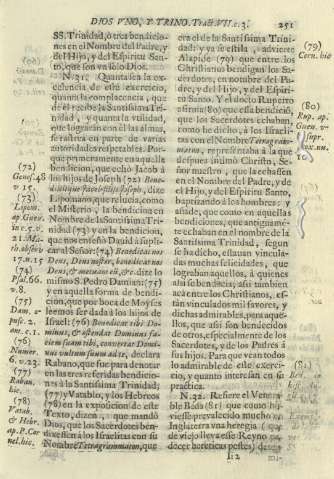 DIOS VNO, Y TRINO. Trat. VII. c. 3. 251
SS. Trinidad, ò tres bendicio-
nes en el Nombre del Padre, y
del Hijo, y del Espiritu San-
to, que son vn solo Dios.
N. 31. Quanta sea la ex-
celencia de este exercicio,
quanta la complacencia, que
de èl recibe la Santissima Tri-
nidad, y quanta la vtilidad,
que lograràn con èl las almas,
se rastrea en parte de varias
autoridades respetables. Por-
que primeramente aquella
bendicion, que echò Jacob à
los hijos de Joseph (72) Bene-
dixitque Jacob filijs Joseph, dize
Lipomano, que relucia, como
el Misterio, la bendicion en
Nombre de la Santissima Tri-
nidad (73) y en la bendicion,
que nos enseñò David à supli-
car al Señor: (74) Benedicat nos
Deus, Deus noster, benedicat nos
Deus, & metuant eũ, &c. dize lo
mismo S. Pedro Damian: (75)
y en aquella forma de bendi-
cion, que por boca de Moyses
leemos ser dada à los hijos de
Israel: (76) Benedicat tibi Do-
minus, & ostendat Dominus fa-
ciem suam tibi, convertat Domi-
nus vultum suum ad te, declara
Rabano, que fue para denotar
en las tres referidas bendicio-
nes à la Santissima Trinidad;
(77) y Vatablo, y los Hebreos
(78) en la exposicion de este
Texto, dizen, que mandò
Dios, que los Sacerdotes ben-
dixessen à los Israelitas con su
Nombre Tetragrammaton, que
(72)
Genes. 48
v. 15.
(73)
Lipom.
(74)
Psal. 66.
(75)
(76)
Numer.
6. v. 23.
(77)
Raban.
hic.
(78)
Vatab.
& Hebr.
ap. P. Cor
nel. hic.
era el de la Santissima Trini-
dad; y ya se estila, advierte
Alapide (79) que entre los
Christianos bendigan los Sa-
cerdotes, en nombre del Pa-
dre, y del Hijo, y del Espiri-
tu Santo. Y el docto Ruperto
afirma (80) que esta bendiciõ,
que los Sacerdotes echaban,
como he dicho, à los Israeli-
tas con el Nombre Tetragram-
maton, representaba à la que
despues intimò Christo, Se-
ñor nuestro, que la echassen
en el Nombre del Padre, y del
Hijo, y del Espiritu Santo,
baptizando à los hombres: y
añade, que como en aquellas
bendiciones, que antiguamẽ-
te echaban en el nombre de la
Santissima Trinidad, segun
se ha dicho, estaban vincula-
das muchas felicidades, que
lograban aquellos, à quienes
assi se bendecia; assi tambien
acà entre los Christianos, es-
tàn vinculados mil favores, y
dichas admirables, para aque-
llos, que assi son bendecidos
de otros, especialmente de los
Sacerdotes, y de los Padres à
sus hijos. Para que vean todos
lo admirable de este exerci-
cio, y quanto interessan en su
practica.
N. 32. Refiere el Venera-
ble Beda (81) que como hu-
viesse prevalecido mucho en
Inglaterra vna heregia (que
de viejo lleva este Reyno pa-
decer hereticas pestes) des-
(79)
Corn. hic
(80)
Rup. ap.
Ii 2